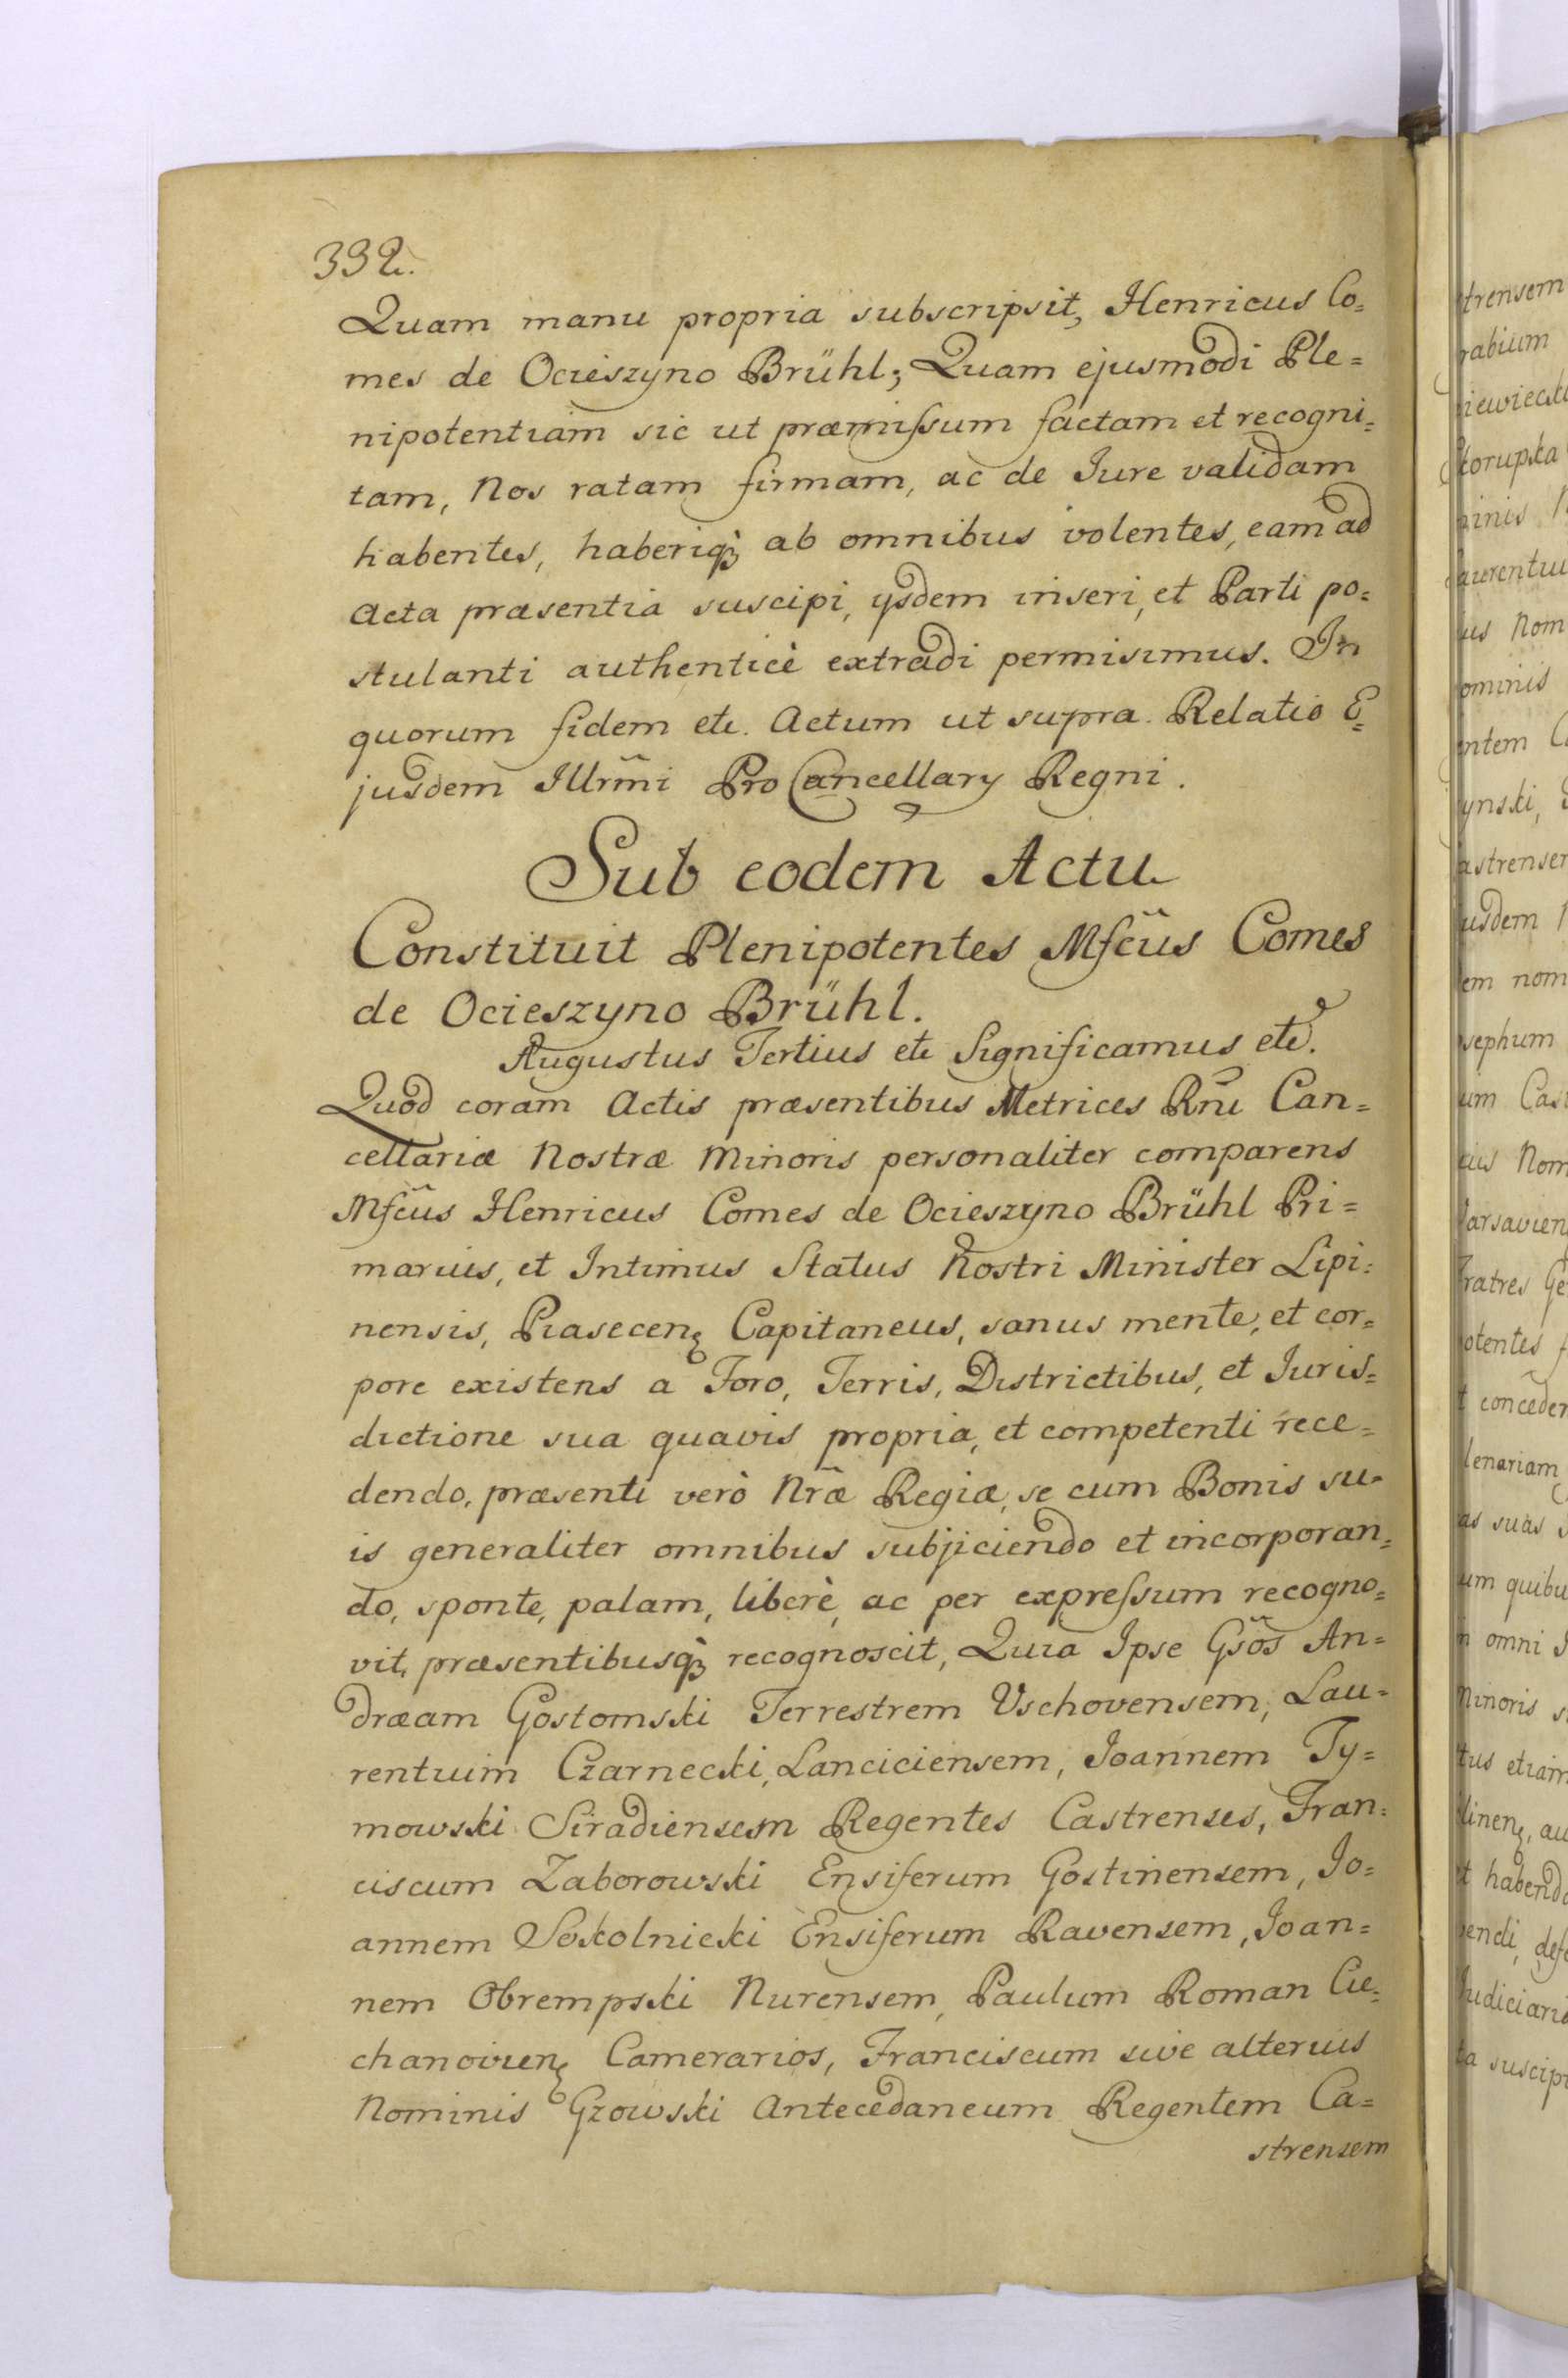 332.
Quam manu propria subscripsit, Henricus Co=
mes de Ocieszyno Brühl; Quam ejusmodi Ple=
nipotentiam sic ut præmiſsum factam et recogni=
tam, Nos ratam firmam, ac de Iure validam
habentes, haberiq̀ꝫ ab omnibus volentes, eam ad
Acta præsentia suscipi, ijsdem inseri, et Parti po=
stulanti authenticè extradi permisimus. In
quorum fidem etc. Actum ut supra. Relatio E=
jusdem Illrm̃i Pro Cancellary Regni.
Sub eodem Actu
Constituit Plenipotentes Mfcũs Comes
de Ocieszyno Brühl.
Augustus Tertius etc Significamus etc.
Quod coram Actis præsentibus Metrices Rñi Can=
cellariæ Nostræ Minoris personaliter comparens
Mfcũs Henricus Comes de Ocieszyno Brühl Pri=
marius, et Intimus Status Nostri Minister Lipi=
nensis, Piasecenꝫ Capitaneus, sanus mente, et cor=
pore existens a Foro, Terris, Districtibus, et Iuris=
dictione sua quavis propria, et competenti rece=
dendo, præsenti verò Nr̃æ Regiæ, se cum Bonis su=
is generaliter omnibus subjiciendo et incorporan=
do, sponte, palam, liberè, ac per expreſsum recogno=
vit, præsentibusq̀ꝫ recognoscit, Quia Ipse Gsõs An=
dræam Gostomski Terrestrem Vschovensem, Lau=
rentium Czarnecki, Lanciciensem, Joannem Ty=
mowski Siradiensem Regentes Castrenses, Fran=
ciscum Zaborowski Ensiferum Gostinensem, Jo=
annem Sokolnicki Ensiferum Ravensem, Joan=
nem Obrempski Nurensem, Paulum Roman Cie=
chanovienꝫ Camerarios, Franciscum sive alterius
Nominis Gzowski Antecedaneum Regentem Ca=
strensem
trensem
rabium
iewiecki
korupka
ninis
aurentiu
ius Nom
ominis
ntem
ynski,
astrensem
usdem
em nom
sephum
um Cas
ius Nom
arsavien
ratres Ge
otentes
conceder
lenariam
as suas
um quibu
omni
Minoris
tus etiam
linenꝫ, au
t habend
endi, defe
Iudiciari
ta suscipi